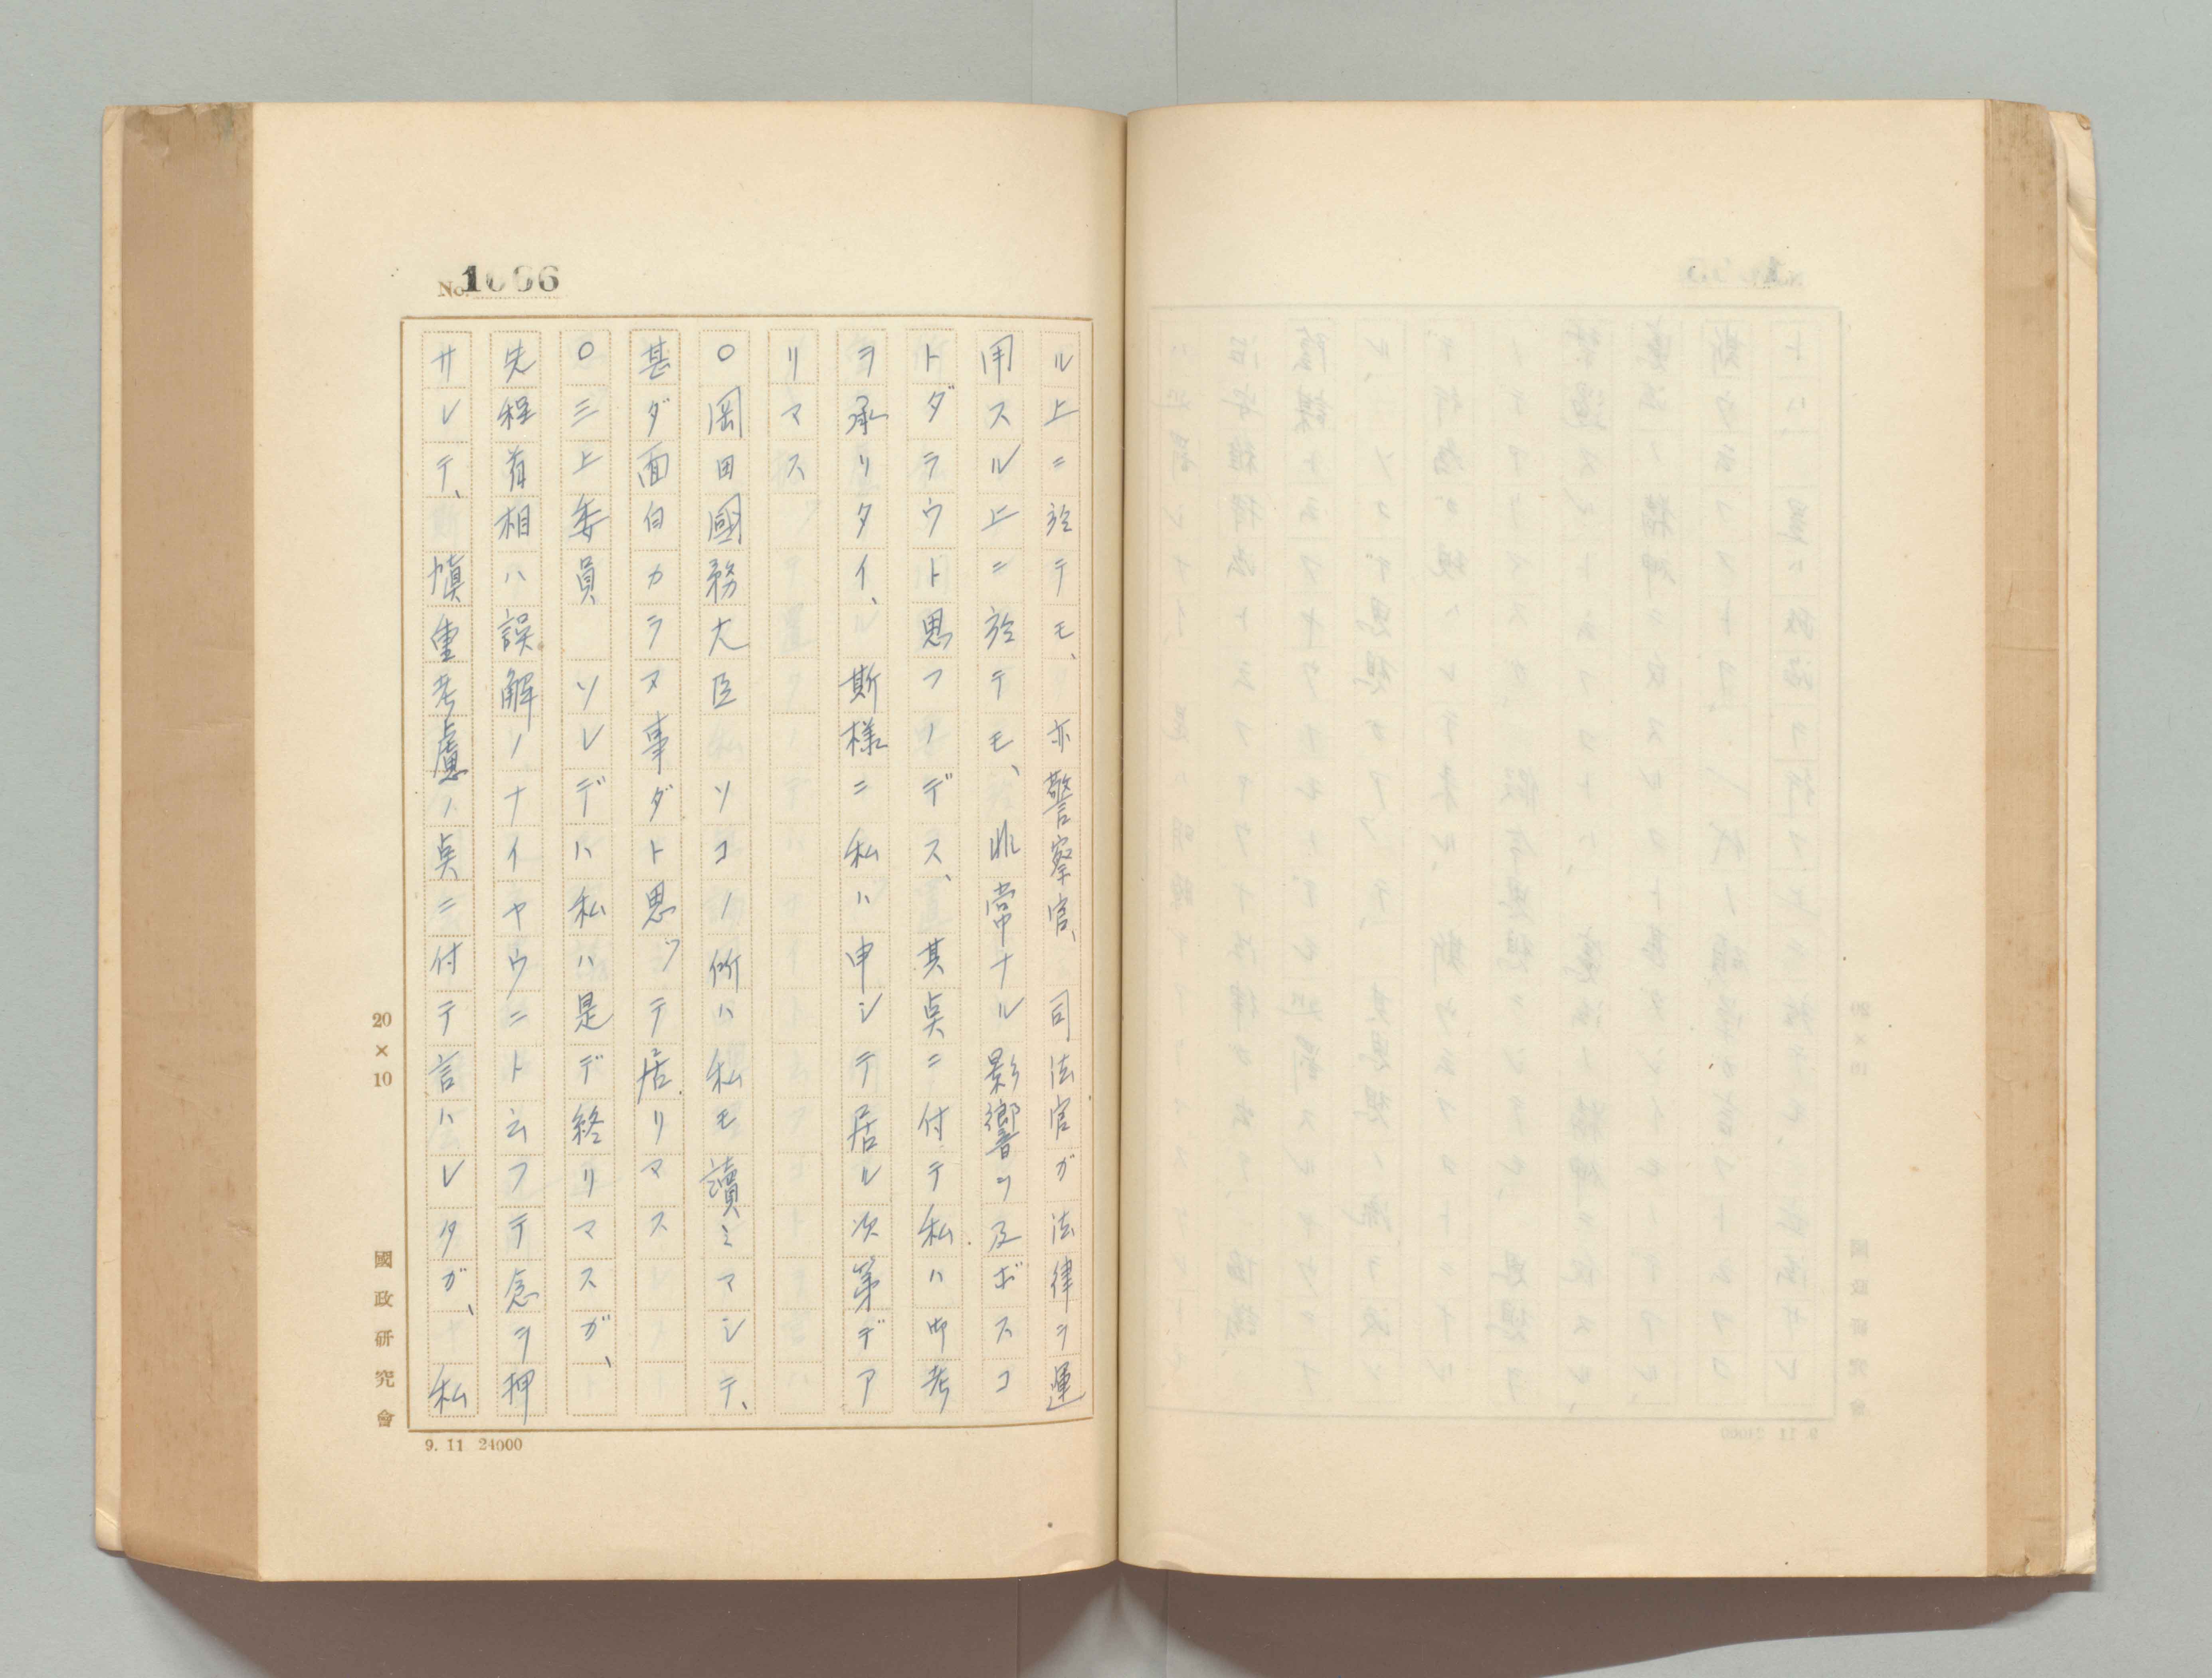 No. 1066
ル上ニ於テモ、亦警察官、司法官ガ法律ヲ運
用スル上ニ於テモ、非常ナル影響ヲ及ボスコ
トダラウト思フノデス、其点ニ付テ私ハ御考
ヲ承リタイ、斯様ニ私ハ申シテ居ル次第デア
リマス
○岡田國務大臣 ソコノ所ハ私モ讀ミマシテ、
甚ダ面白カラヌ事ダト思ッテ居リマス
○三上委員 ソレデハ私ハ是デ終リマスガ、
先程首相ハ誤解ノナイヤウニト云フテ念ヲ押
サレテ、愼重考慮ノ点ニ付テ言ハレタガ、私
20×10
國政研究會
9. 11 24000